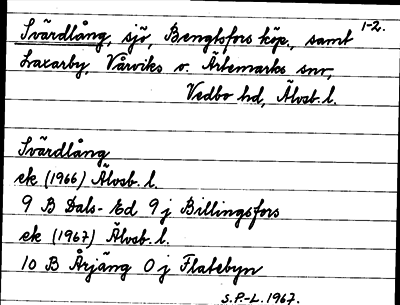 Svärdlång, sjö, Bengtsfors köp., samt 1-2.
Laxarby, Vårviks o. Ärtemarks snr,
Vedbo hd, Älvsb. l.
Svärdlång
ek (1966) Älvsb. l.
9 B Dals-Ed 9 j Billingsfors
ek (1967) Älvsb. l.
10 B Årjäng 0 j Flatebyn
S.P.-L. 1967.